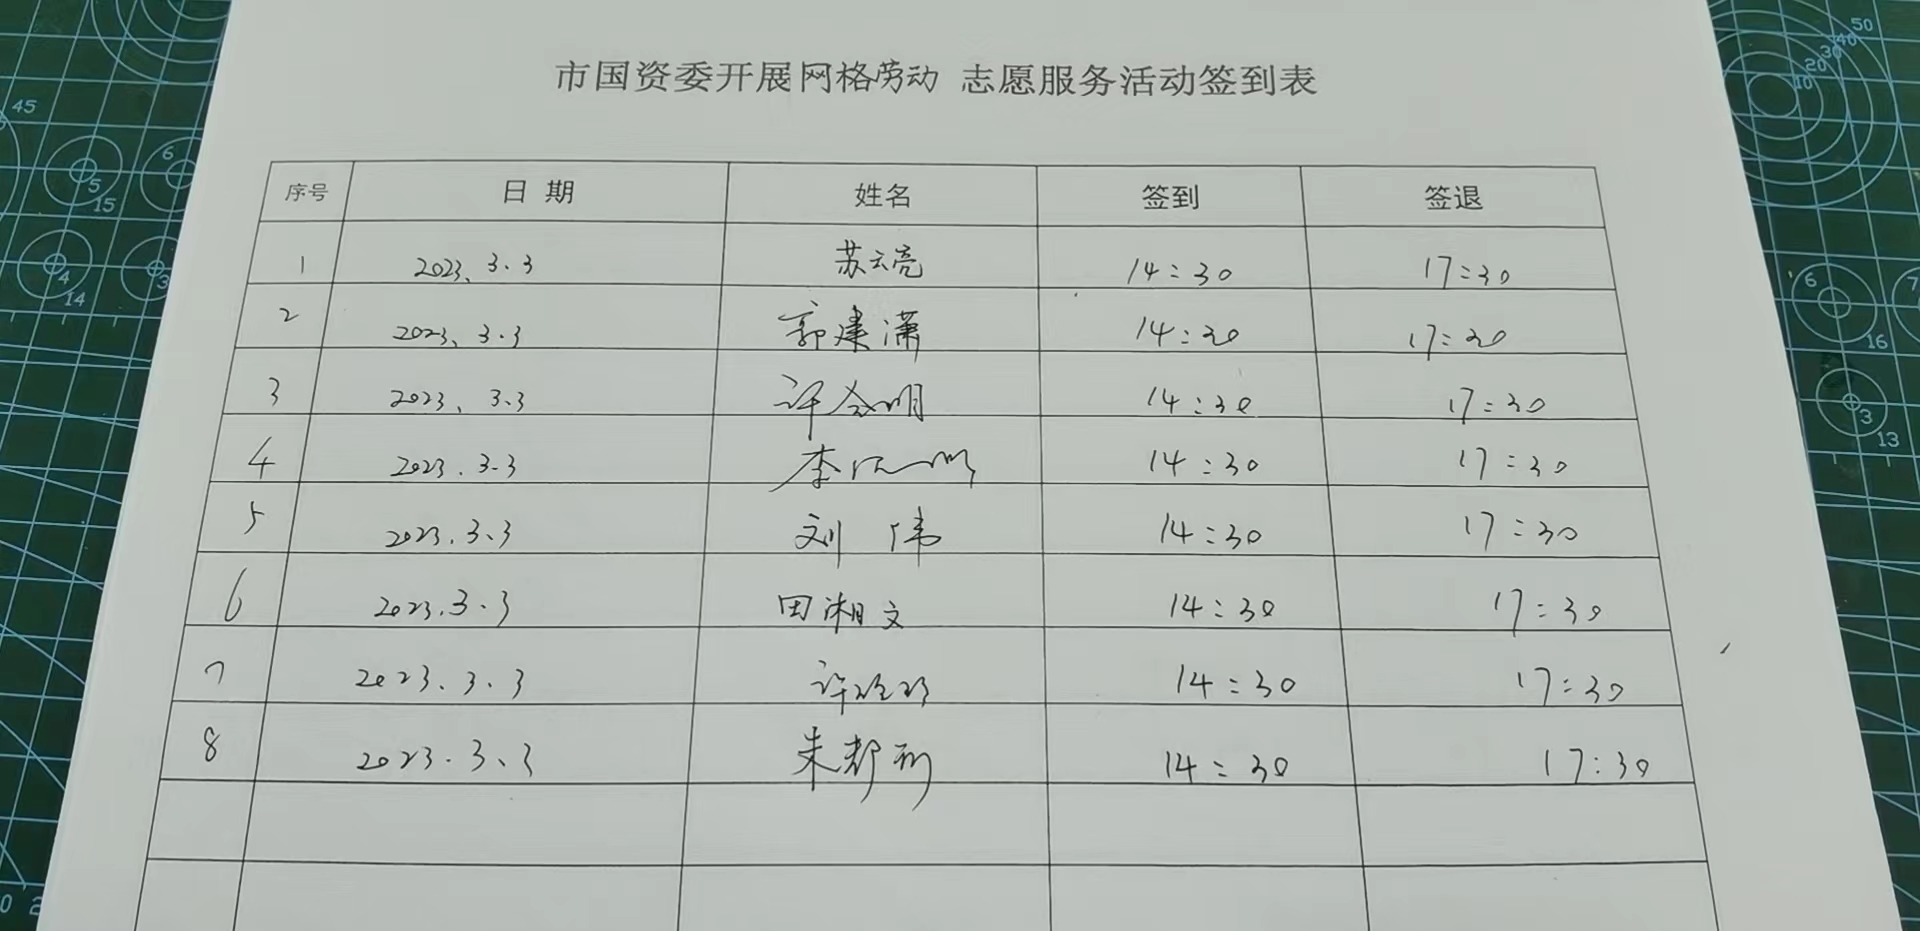 市国资委开展网格劳动 志愿服务活动签到表
序号 日期 姓名 签到 签退
1 2023.3.3 苏云亮 14:30 17:30
2 2023.3.3 郭建潇 14:30 17:30
3 2023.3.3 许 明 14:30 17:30
4 2023.3.3 李 14:30 17:30
5 2023.3.3 刘伟 14:30 17:30
6 2023.3.3 田湘文 14:30 17:30
7 2023.3.3 许 14:30 17:30
8 2023.3.3 朱 14:30 17:30